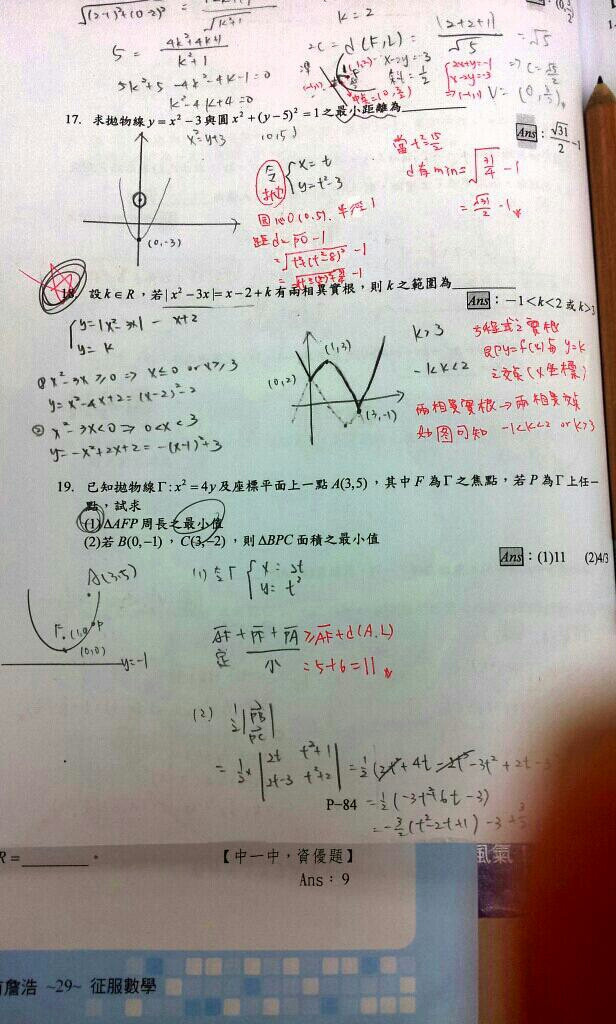 5 = 4k²+4k+1 / k²+1
5k²+5 -4k²-4k-1=0
k²-4k+4=0
k=2
2C = d(F,L) = |2+2+1| / √5 = √5
17. 求拋物線 y = x² − 3 與圓 x² + (y−5)² = 1 之最小距離為
Ans: √31/2 −1
x²=y+3
(0,5)
(0,-3)
令拋 { x=t
y=t²-3
圓心O(0,5), 半徑1
距 d = PO - 1
當 t²=15/2
d有min = √(31/4) - 1
= √31/2 - 1
18. 設 k∈R,若 |x² −3x| = x−2+k 有兩相異實根,則 k 之範圍為
Ans: −1<k<2 或 k>3
{ y=|x²-3x| - x+2
y= k
① x²-3x≥0 ⇒ x≤0 or x≥3
y= x²-4x+2 = (x-2)²-2
② x²-3x<0 ⇒ 0<x<3
y= -x²+2x+2 = -(x-1)²+3
(0,2)
(1,3)
(3,-1)
k>3
-1<k<2
方程式之實根
即y=f(x)與 y=k
之交點(x坐標)
兩相異實根→兩相異交點
如圖可知 -1<k<2 or k>3
19. 已知拋物線Γ: x² = 4y 及座標平面上一點 A(3,5),其中 F 為Γ之焦點,若 P 為Γ上任一
點,試求
(1)ΔAFP 周長之最小值
(2)若 B(0,−1),C(3,−2),則ΔBPC 面積之最小值
Ans: (1)11 (2)4/3
A(3,5)
F
P
(0,0)
y=-1
(1) 令Γ { x= 2t
y= t²
AF + PF + PA ≥ AF + d(A,L)
定 小
= 5+6 = 11
(2) 1/2 | PB
PC |
= 1/2 × | 2t t²+1
2t-3 t²+2 | = 1/2 (2t³+4t -2t³-3t²+2t-3
= 1/2 (-3t²+6t-3)
= -3/2 (t²-2t+1)
P-84
R = ________。
【中一中,資優題】
Ans:9
風氣
詹浩 ~29~ 征服數學